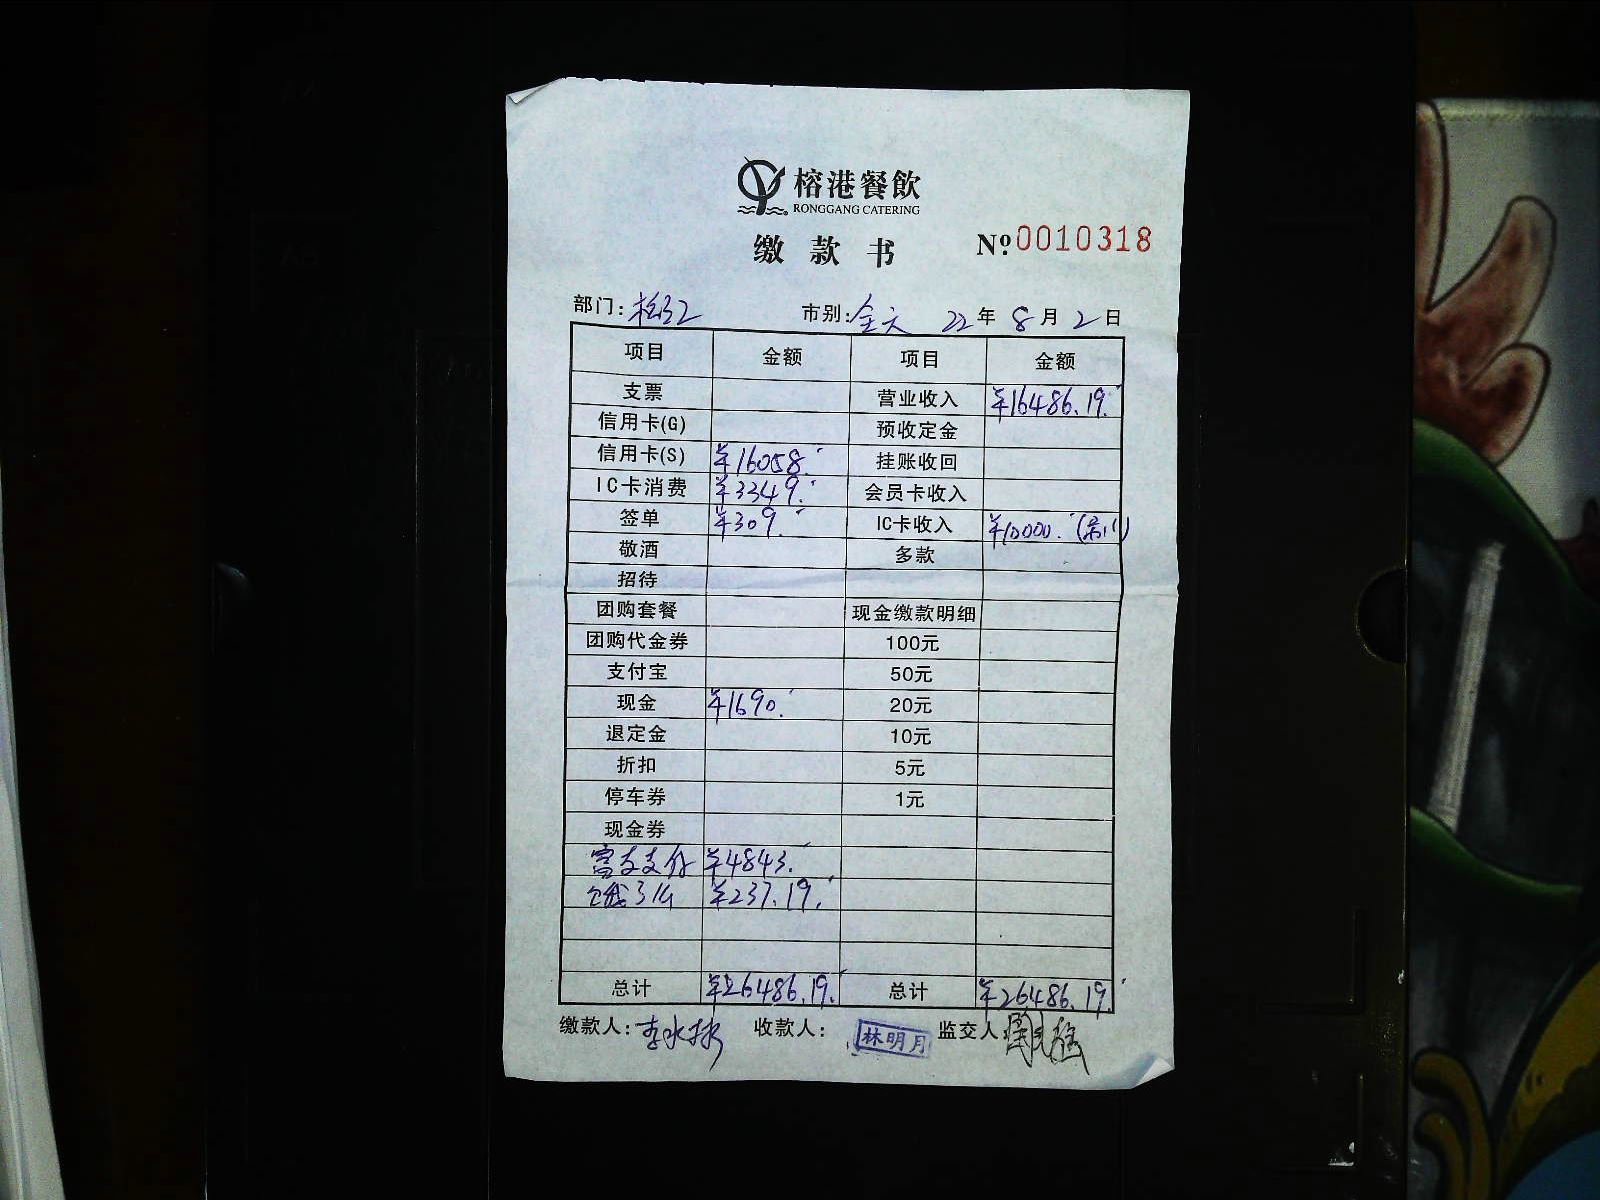 榕港餐飲
RONGGANG CATERING
缴款书 №0010318
部门:松江 市别:全天 22年8月2日
项目 金额 项目 金额
支票 营业收入 ¥16486.19.
信用卡(G) 预收定金
信用卡(S) ¥16058. 挂账收回
IC卡消费 ¥3349. 会员卡收入
签单 ¥309. IC卡收入 ¥10000.
敬酒 多款
招待
团购套餐 现金缴款明细
团购代金券 100元
支付宝 50元
现金 ¥1690. 20元
退定金 10元
折扣 5元
停车券 1元
现金券
富友支付 ¥4843.
饿了么 ¥237.19.
总计 ¥26486.19. 总计 ¥26486.19.
缴款人: 收款人: 林明月 监交人